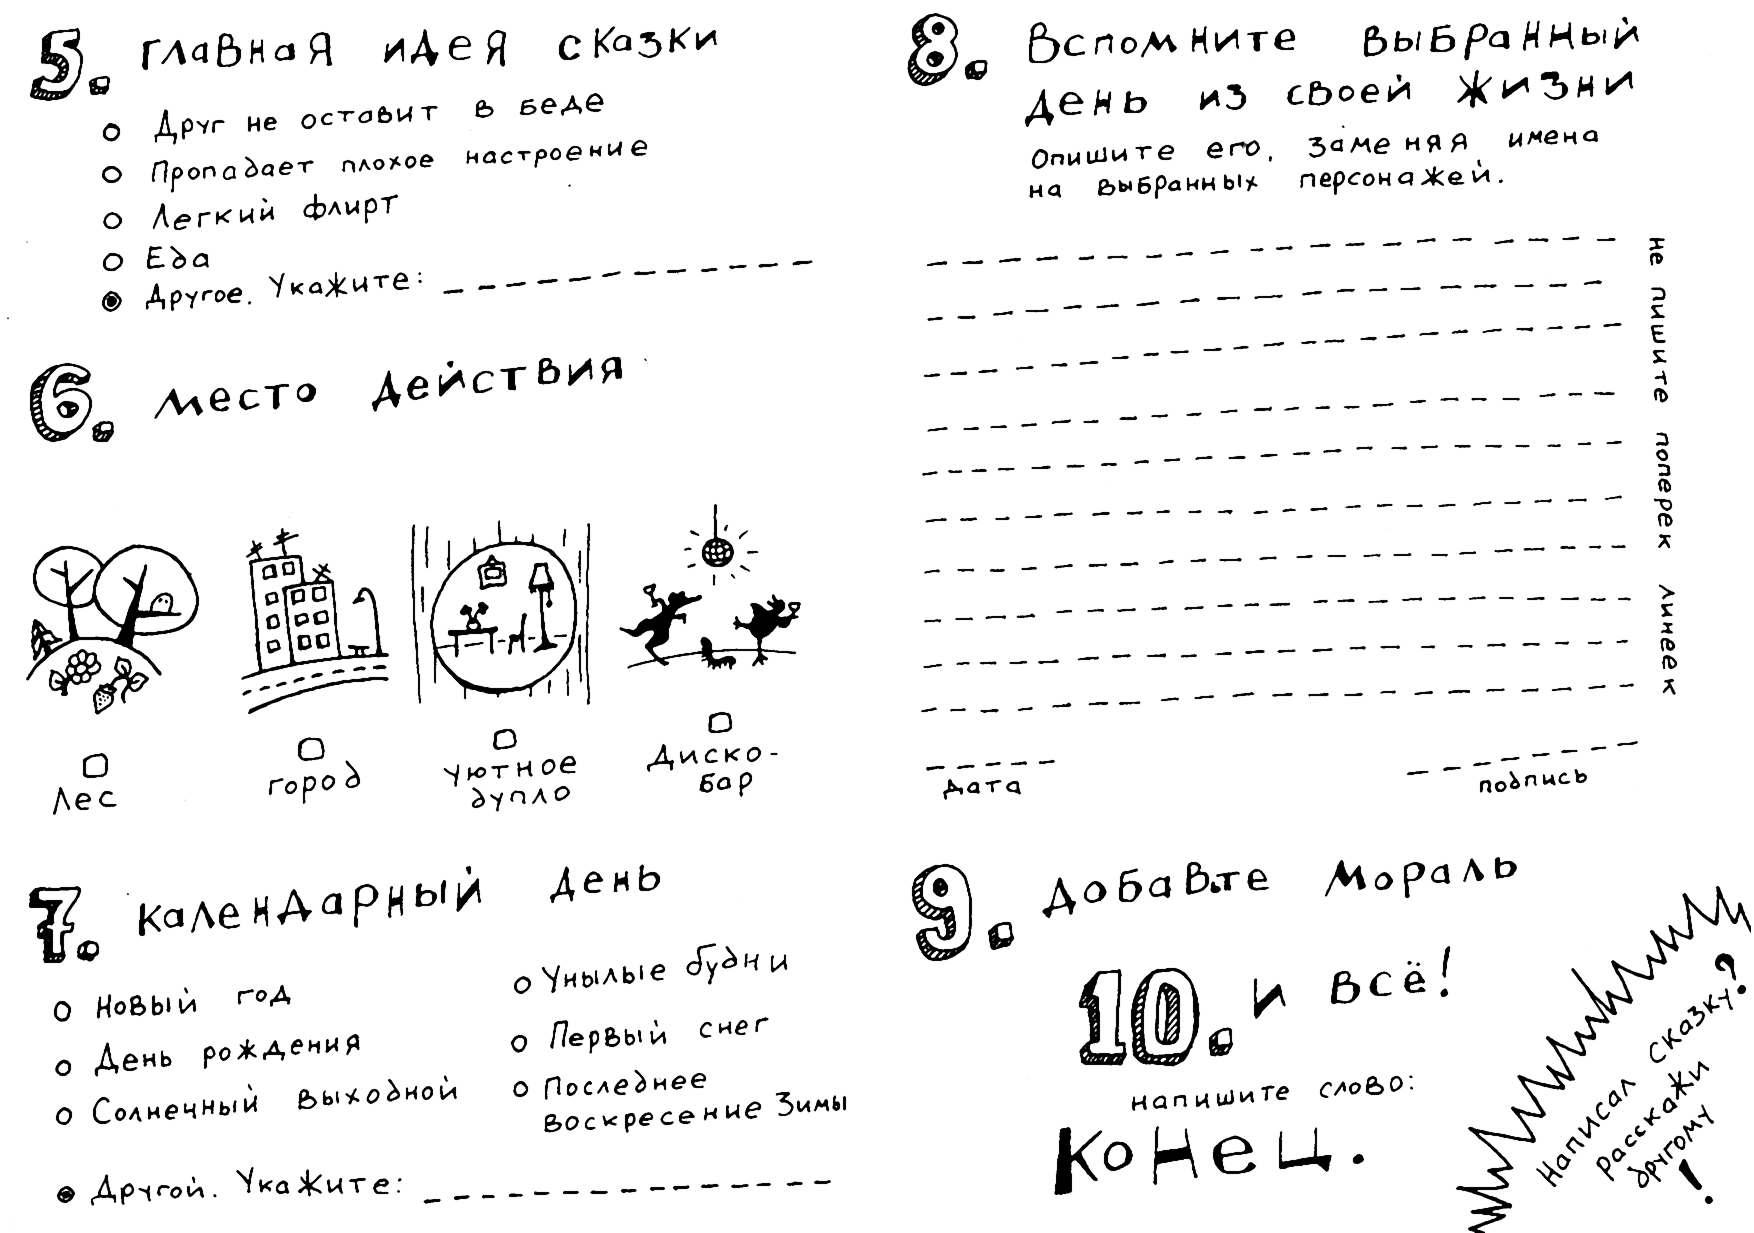 5. Главная идея сказки
Друг не оставит в беде
Пропадает плохое настроение
Легкий флирт
Еда
Другое. Укажите:
6. Место действия
Лес
город
уютное
дупло
Диско-
бар
7. Календарный день
Новый год
День рождения
Солнечный выходной
Унылые будни
Первый снег
Последнее
воскресение зимы
Другой. Укажите:
8. Вспомните выбранный
день из своей жизни
Опишите его, заменяя имена
на выбранных персонажей.
не пишите поперек линеек
дата
подпись
9. Добавьте мораль
10. и всё!
напишите слово:
конец.
Написал сказку?
Расскажи
другому
!